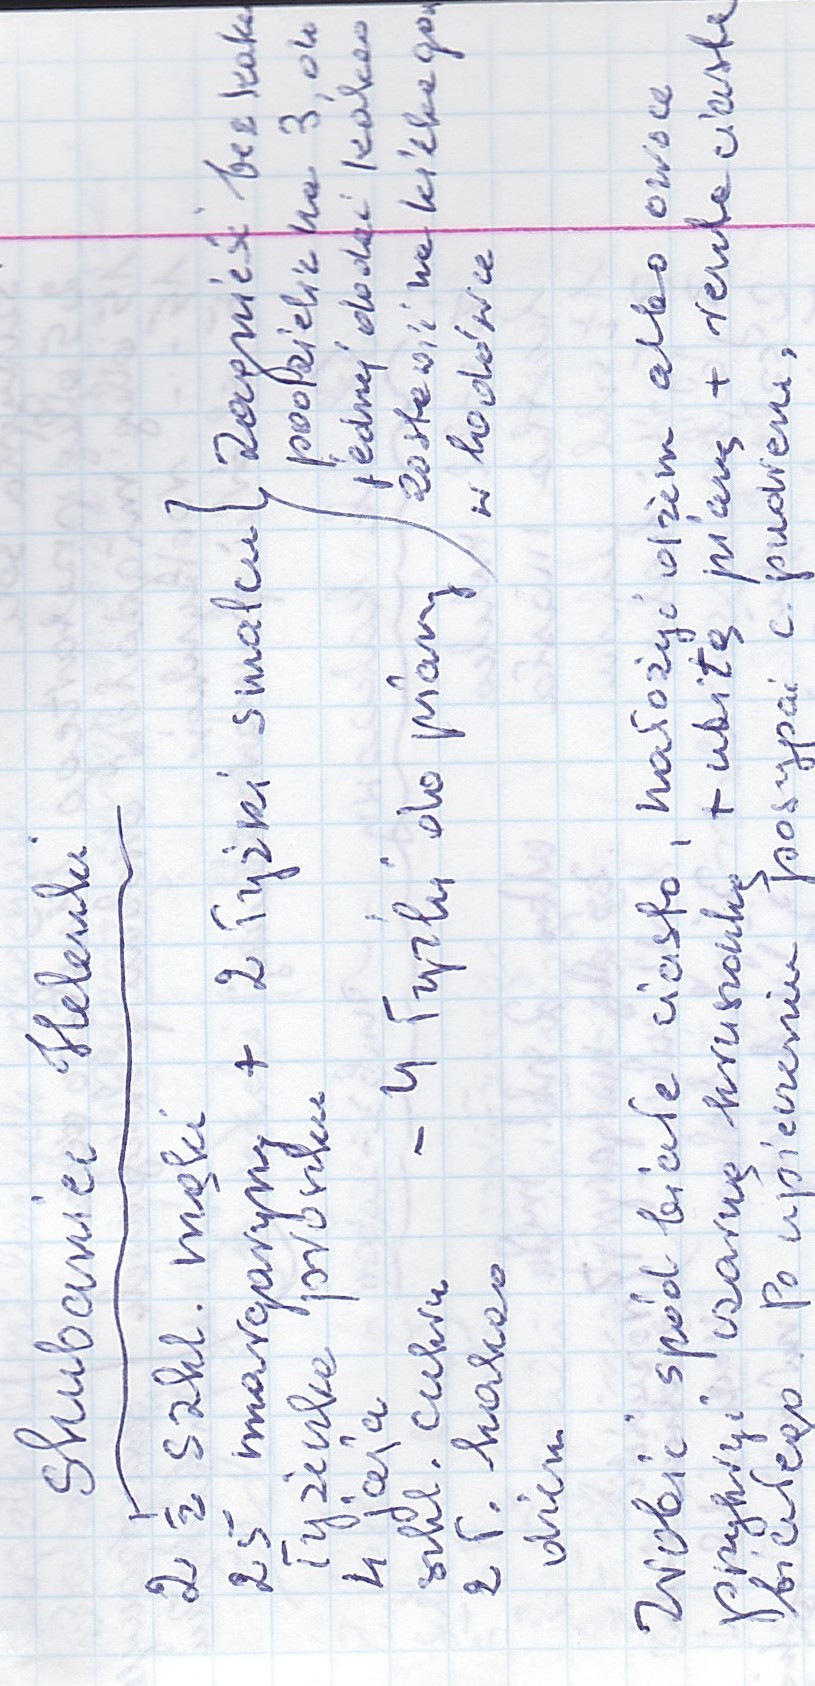 Skubaniec Helenki
2 1/2 szkl. mąki
25 margaryny + 2 łyżki smalcu
łyżeczka proszku
4 jaja
szkl. cukru - 4 łyżki do piany
2 ł. kakao
dżem
Zagnieść bez kaka
podzielić na 3, do
jednej dodać kakao
zostawić na kilka go
w lodówce
Zrobić spód białe ciasto, nałożyć dżem albo owoce
przykryć czarną kruszonką + ubitą pianą + reszta ciasta
białego. Po upieczeniu posypać c. pudrem.